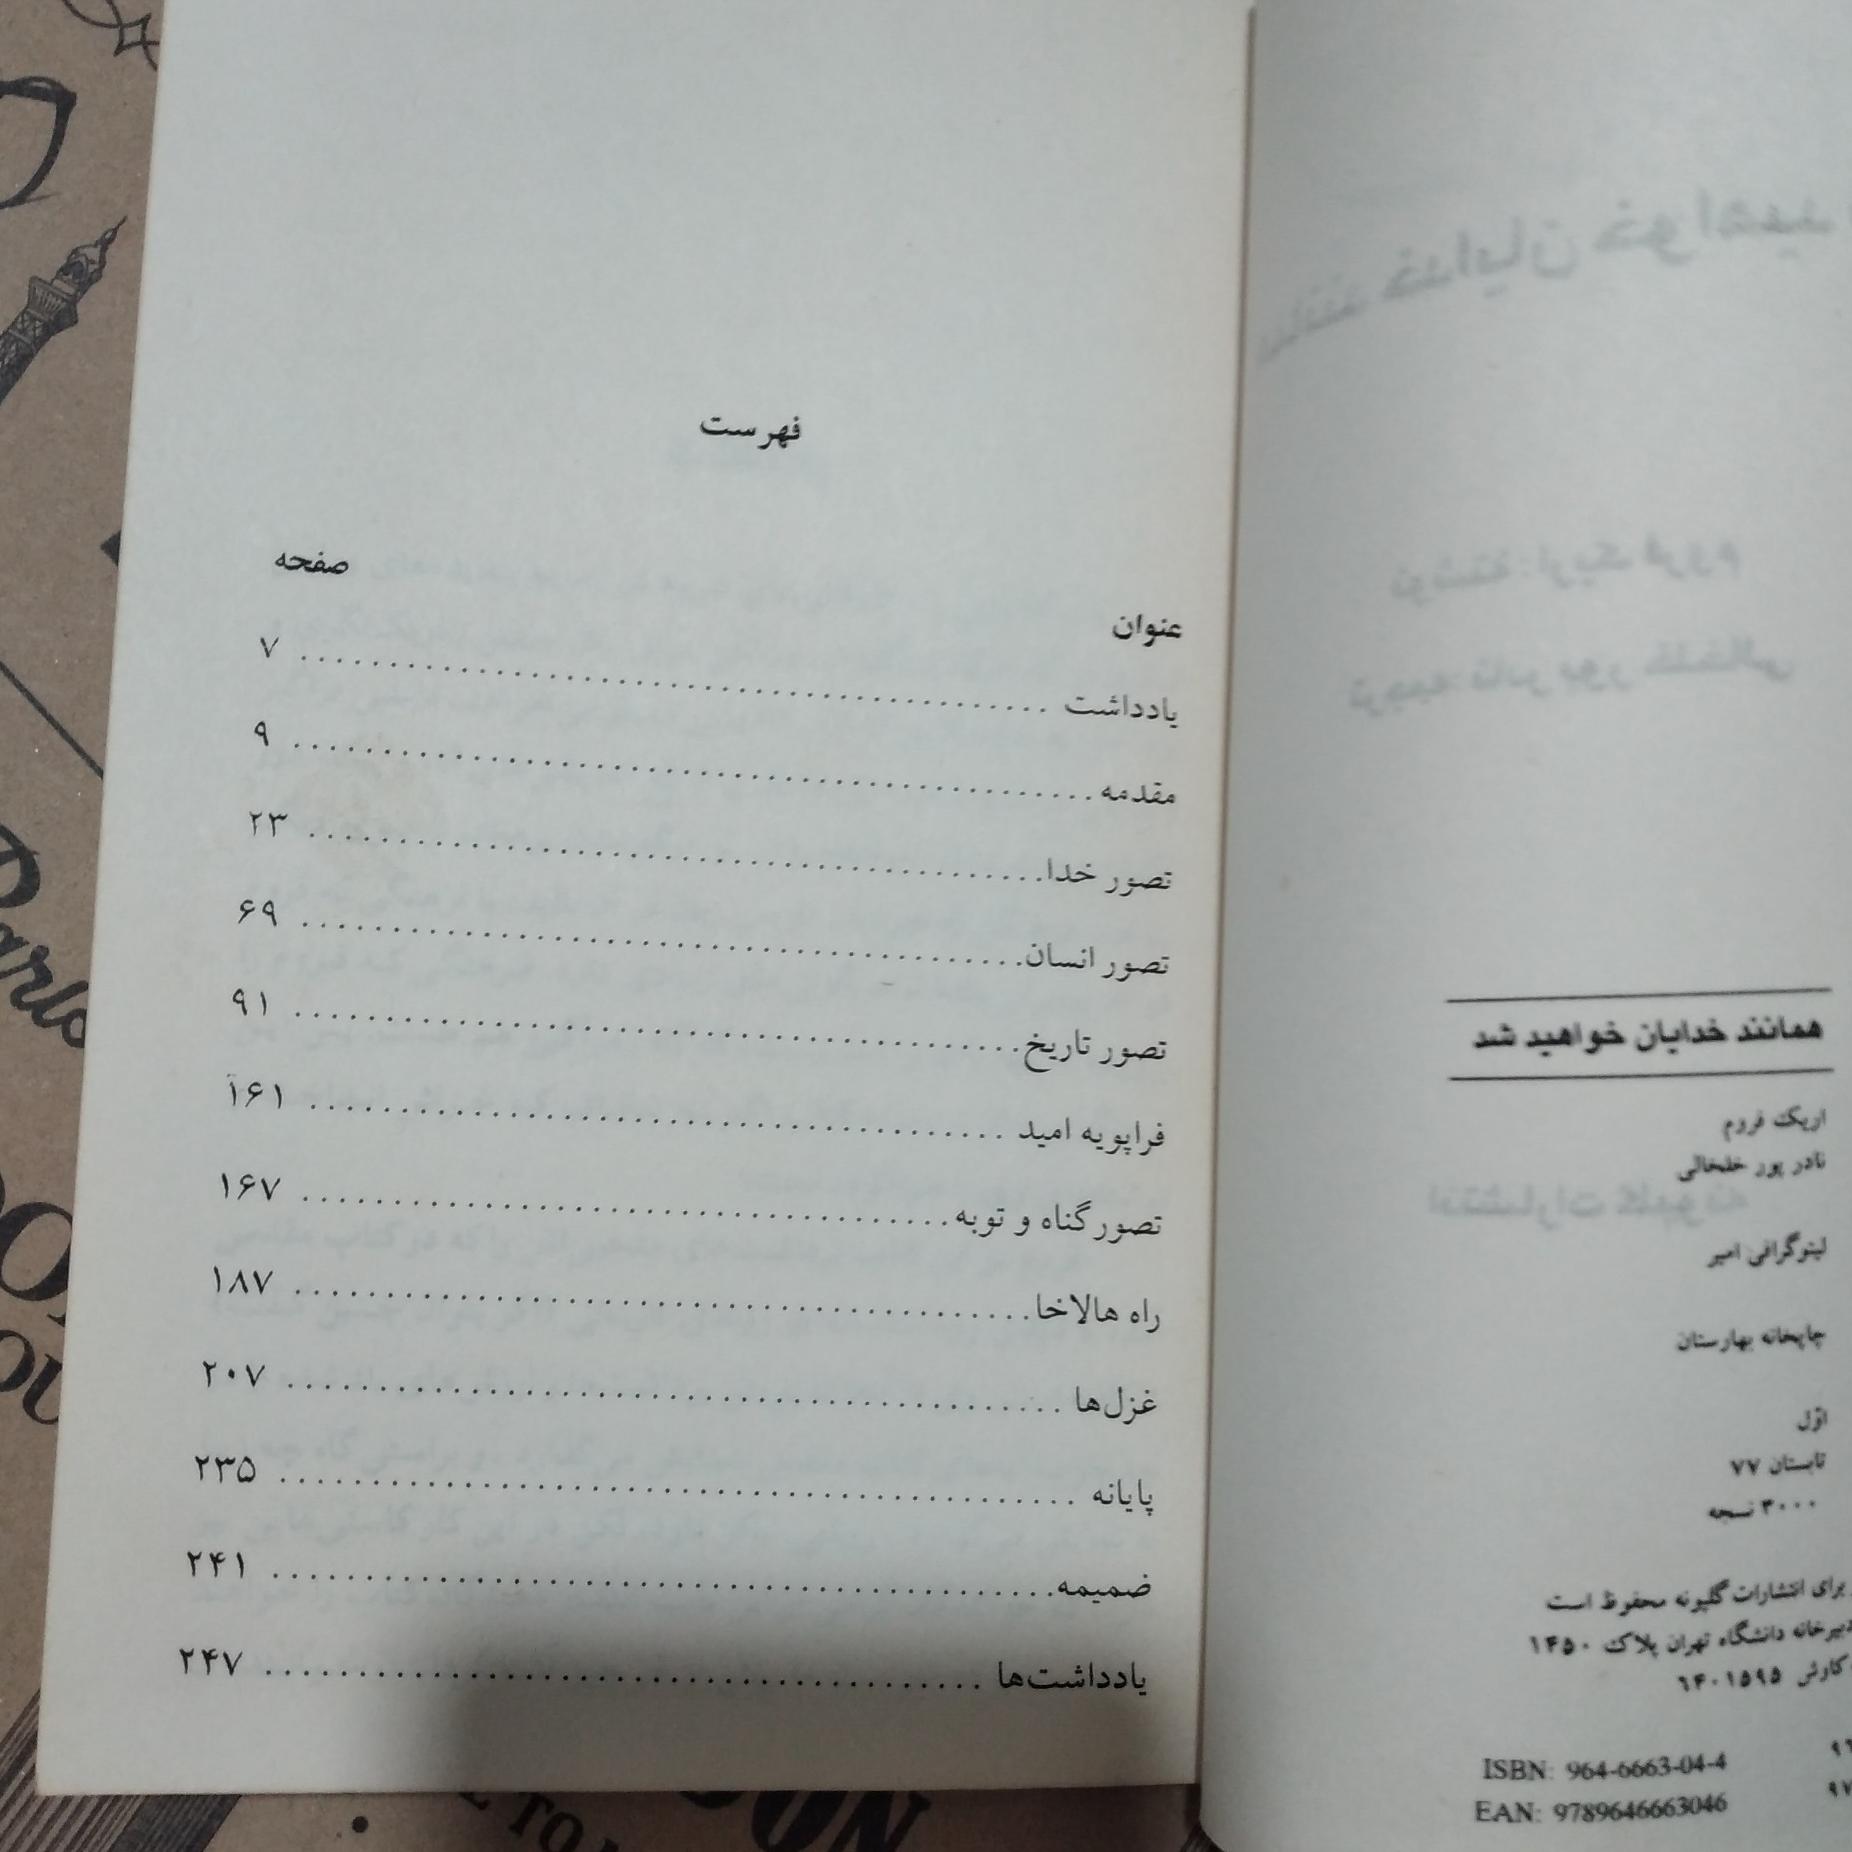 همانند خدایان خواهید شد
اریک فروم
نادر پور خلخالی
لیتوگرافی امیر
چاپخانه بهارستان
اوّل
تابستان ۷۷
۳۰۰۰ نسخه
برای انتشارات گلپونه محفوظ است
دبیرخانه دانشگاه تهران پلاک ۱۴۵۰
۶۴۰۱۵۹۵
ISBN: 964-6663-04-4
EAN: 9789646663046
فهرست
عنوان صفحه
یادداشت ۷
مقدمه ۹
تصور خدا ۲۳
تصور انسان ۶۹
تصور تاریخ ۹۱
فراپویه امید ۱۶۱
تصور گناه و توبه ۱۶۷
راه هالاخا ۱۸۷
غزل‌ها ۲۰۷
پایانه ۲۳۵
ضمیمه ۲۴۱
یادداشت‌ها ۲۴۷